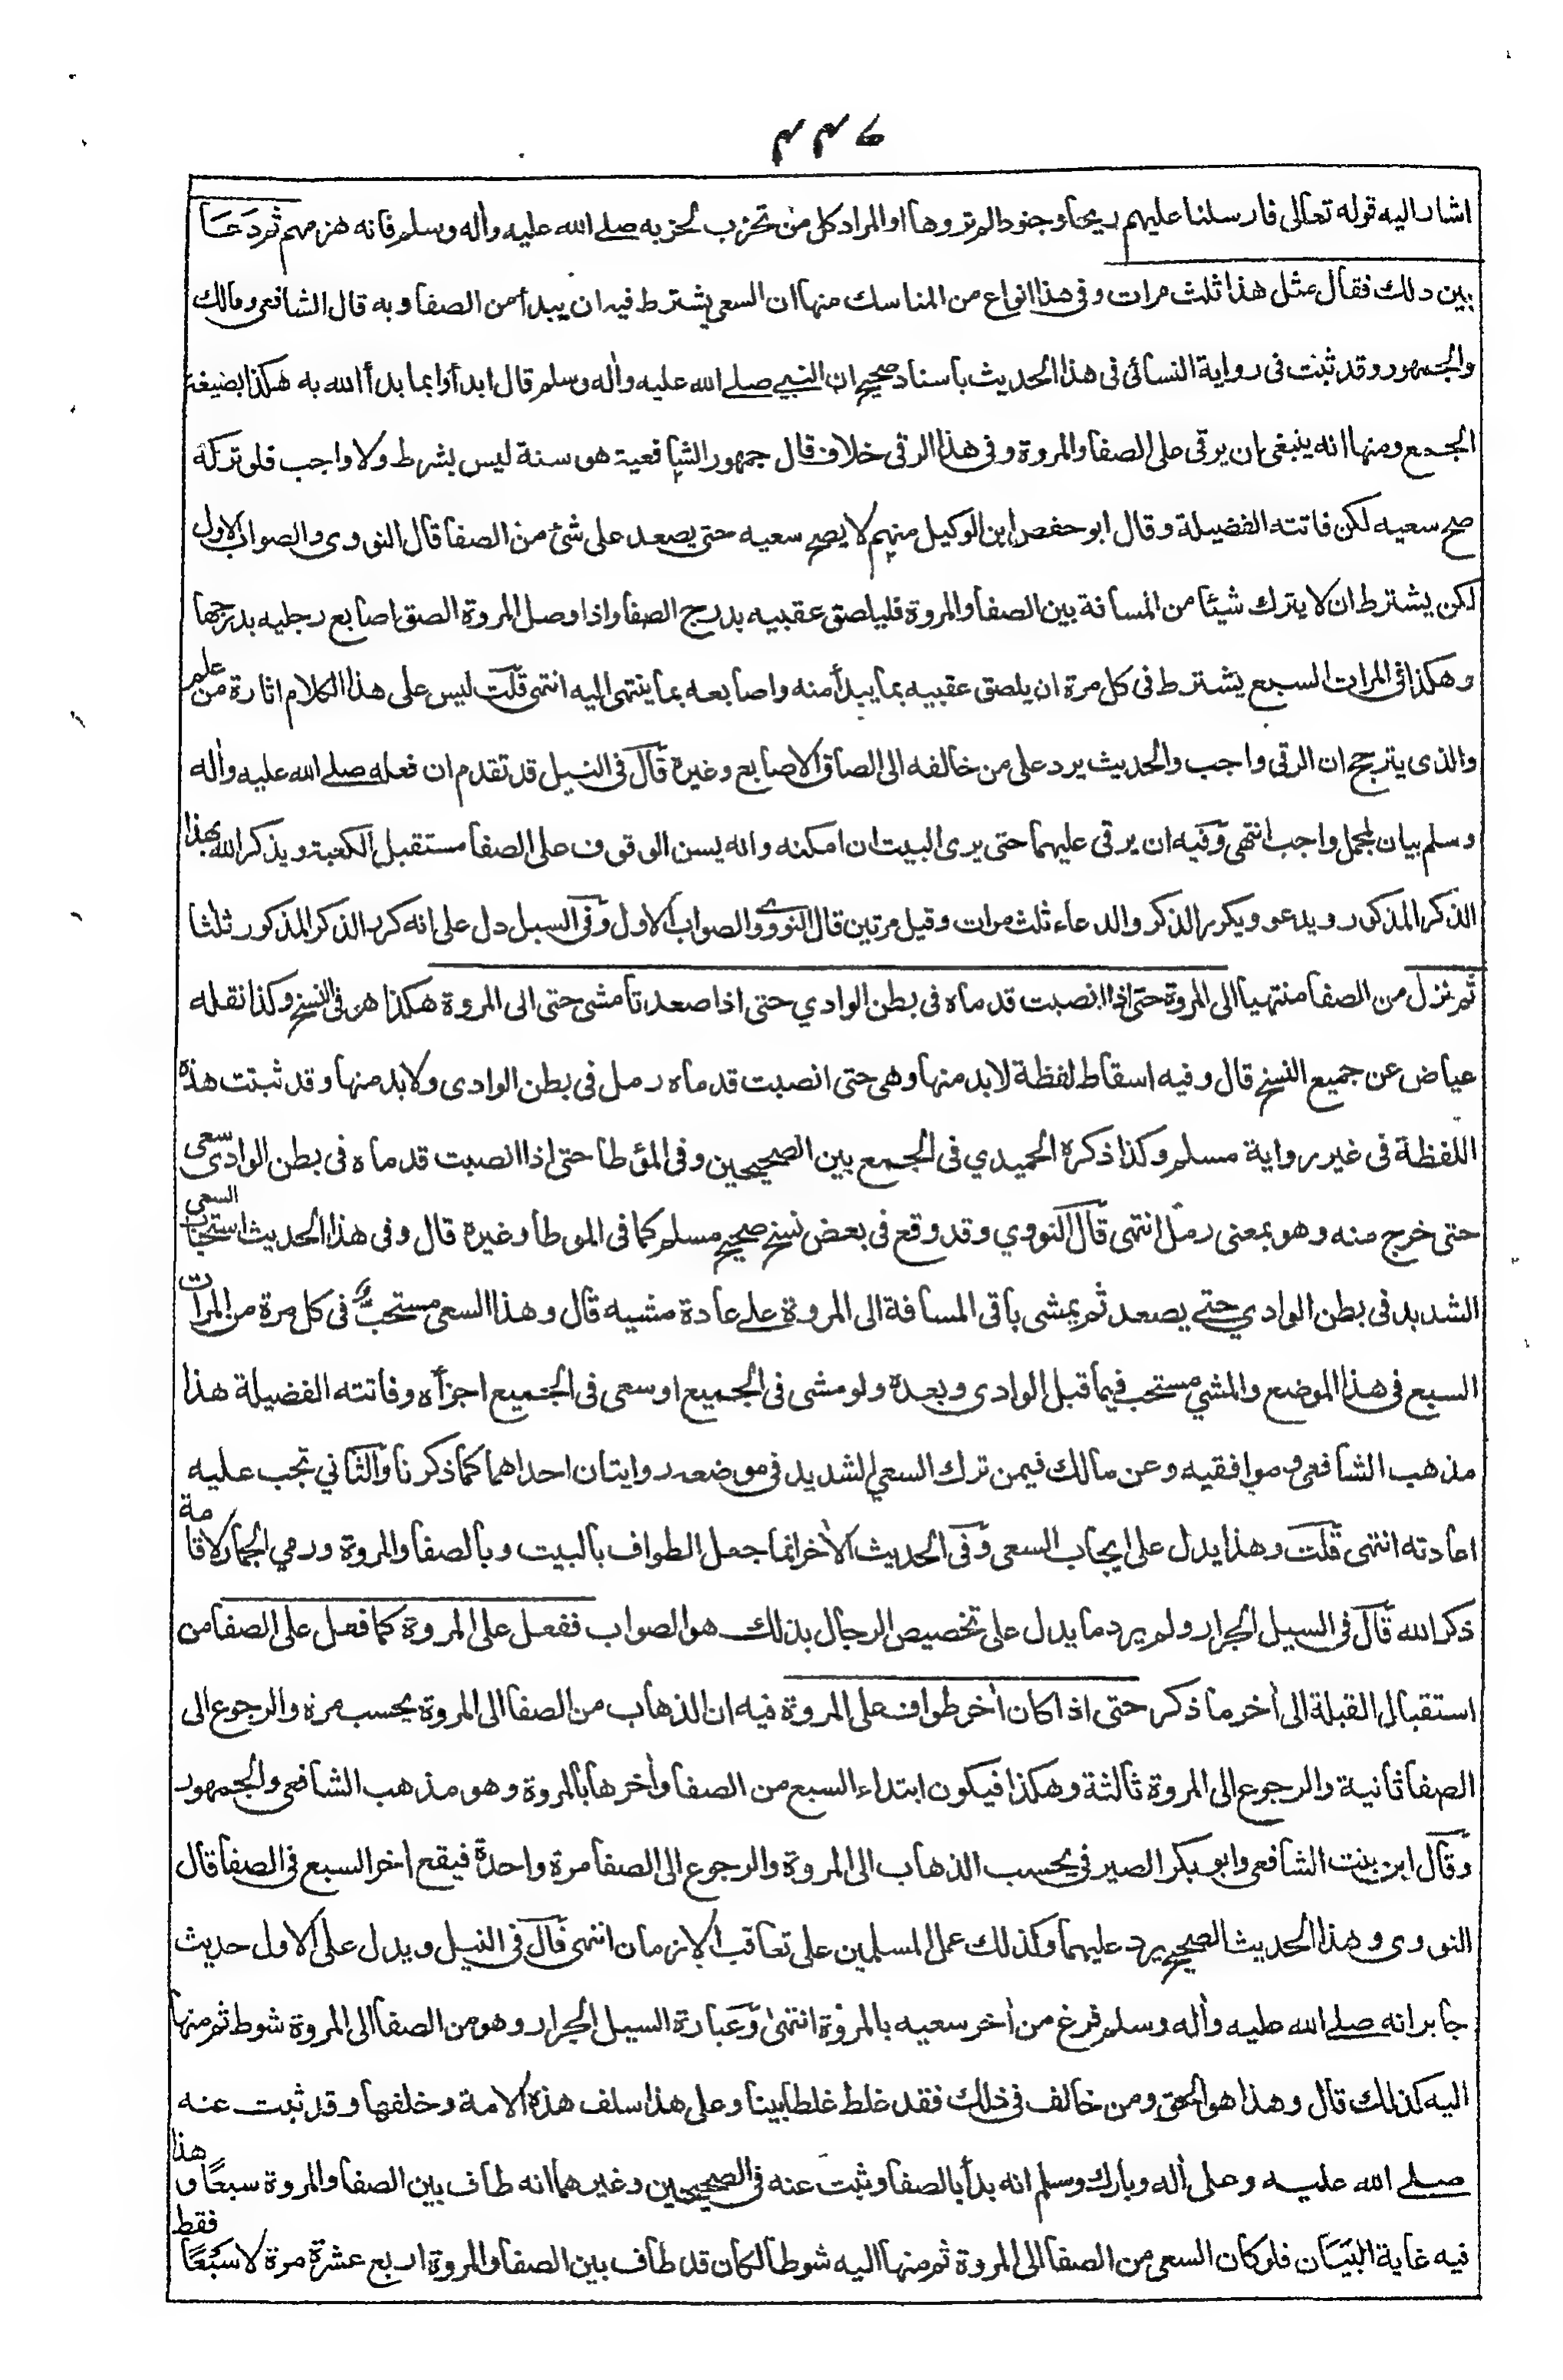 ٤٤٧
اشار اليه قوله تعالى فارسلنا عليهم ريحا وجنودا لم تروها او المراد كل من تحزب لحزبه صلى الله عليه وأله وسلم فانه هزمهم ثم دعا
بين ذلك فقال مثل هذا ثلث مرات وفى هذا انواع من المناسك منها ان السعى يشترط فيه ان يبدأ من الصفا وبه قال الشافعى ومالك
والجمهور وقد ثبت فى رواية النسائى فى هذا الحديث باسناد صحيح ان النبى صلى الله عليه وأله وسلم قال ابدأوا بما بدأ الله به هكذا بصيغة
الجمع ومنها انه ينبغى ان يرقى على الصفا والمروة وفى هذا الرقى خلاف قال جمهور الشافعية هو سنة ليس بشرط ولا واجب فلو تركه
صح سعيه لكن فاتته الفضيلة وقال ابو حفص ابن الوكيل منهم لا يصح سعيه حتى يصعد على شئ من الصفا قال النووى والصواب الاول
لكن يشترط ان لا يترك شيئا من المسافة بين الصفا والمروة فليلصق عقبيه بدرج الصفا واذا وصل المروة الصق اصابع رجليه بدرجها
وهكذا فى المرات السبع يشترط فى كل مرة ان يلصق عقبيه بما يبدأ منه واصابعه بما ينتهى اليه انتهى قلت ليس على هذا الكلام اثارة من علم
والذى يترجح ان الرقى واجب والحديث يرد على من خالفه الى الصاق الاصابع وغيره قال فى النيل قد تقدم ان فعله صلى الله عليه وأله
وسلم بيان لمجمل واجب انتهى وفيه ان يرقى عليهما حتى يرى البيت ان امكنه وانه يسن الوقوف على الصفا مستقبل الكعبة ويذكر الله بهذا
الذكر المذكور ويدعو ويكرر الذكر والدعاء ثلث مرات وقيل مرتين قال النووى والصواب الاول وفى السبل دل على انه كرر الذكر المذكور ثلثا
ثم نزل من الصفا منتهيا الى المروة حتى اذا انصبت قدماه فى بطن الوادي حتى اذا صعدتا مشى حتى الى المروة هكذا هو فى النسخ وكذا نقله
عياض عن جميع النسخ قال وفيه اسقاط لفظة لابد منها وهى حتى انصبت قدماه رمل فى بطن الوادى ولابد منها وقد ثبتت هذه
اللفظة فى غير رواية مسلم وكذا ذكره الحميدي فى الجمع بين الصحيحين وفى المؤطا حتى اذا انصبت قدماه فى بطن الوادى سعى
حتى خرج منه وهو بمعنى رمل انتهى قال النووي وقد وقع فى بعض نسخ صحيح مسلم كما فى الموطا وغيره قال وفى هذا الحديث استحباب السعى
الشديد فى بطن الوادي حتى يصعد ثم يمشى باقى المسافة الى المروة على عادة مشيه قال وهذا السعى مستحبٌ فى كل مرة من المرات
السبع فى هذا الموضع والمشي مستحب فيما قبل الوادى وبعده ولو مشى فى الجميع او سعى فى الجميع اجزأه وفاتته الفضيلة هذا
مذهب الشافعى وموافقيه وعن مالك فيمن ترك السعي الشديد فى موضعه روايتان احداهما كما ذكرنا والثاني تجب عليه
اعادته انتهى قلت وهذا يدل على ايجاب السعى وفى الحديث الأخر انما جعل الطواف بالبيت وبالصفا والمروة ورمي الجمار لاقامة
ذكر الله قال فى السيل الجرار ولم يرد ما يدل على تخصيص الرجال بذلك هو الصواب ففعل على المروة كما فعل على الصفا من
استقبال القبلة الى أخر ما ذكر حتى اذا كان أخر طواف على المروة فيه ان الذهاب من الصفا الى المروة يحسب مرة والرجوع الى
الصفا ثانية والرجوع الى المروة ثالثة وهكذا فيكون ابتداء السبع من الصفا وأخرها بالمروة وهو مذهب الشافعى والجمهور
وقال ابن بنت الشافعى وابو بكر الصيرفى يحسب الذهاب الى المروة والرجوع الى الصفا مرة واحدة فيقع اخر السبع فى الصفا قال
النووى وهذا الحديث الصحيح يرد عليهما وكذلك عمل المسلمين على تعاقب الازمان انتهى قال فى النيل ويدل على الاول حديث
جابر انه صلى الله عليه وأله وسلم فرغ من أخر سعيه بالمروة انتهى وعبارة السيل الجرار وهو من الصفا الى المروة شوط ثم منها
اليه كذلك قال وهذا هو الحق ومن خالف فى ذلك فقد غلط غلطا بينا وعلى هذا سلف هذه الامة وخلفها وقد ثبت عنه
صلى الله عليه وعلى أله وبارك وسلم انه بدأ بالصفا وثبت عنه فى الصحيحين وغيرهما انه طاف بين الصفا والمروة سبعًا وهذا
فيه غاية البَيَان فلو كان السعى من الصفا الى المروة ثم منها اليه شوطا لكان قد طاف بين الصفا والمروة اربع عشرة مرة لا سَبْعًا فقط